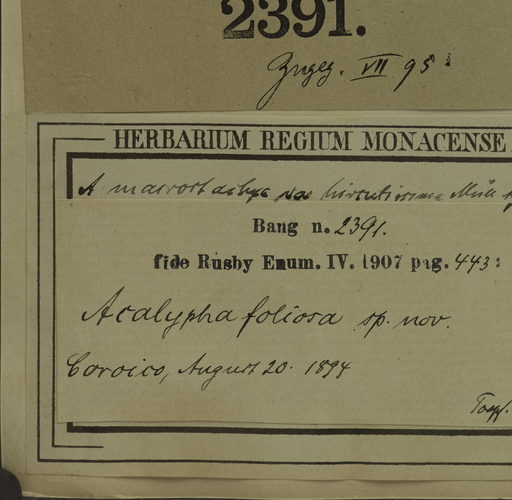 2391.
VII 95.
HERBARIUM REGIUM MONACENSE
A. macrostachya var hirsutissima Müll
Bang n. 2391.
fide Rusby Enum. IV. 1907 pag. 443:
Acalypha foliosa sp. nov.
Coroico, August 20. 1894